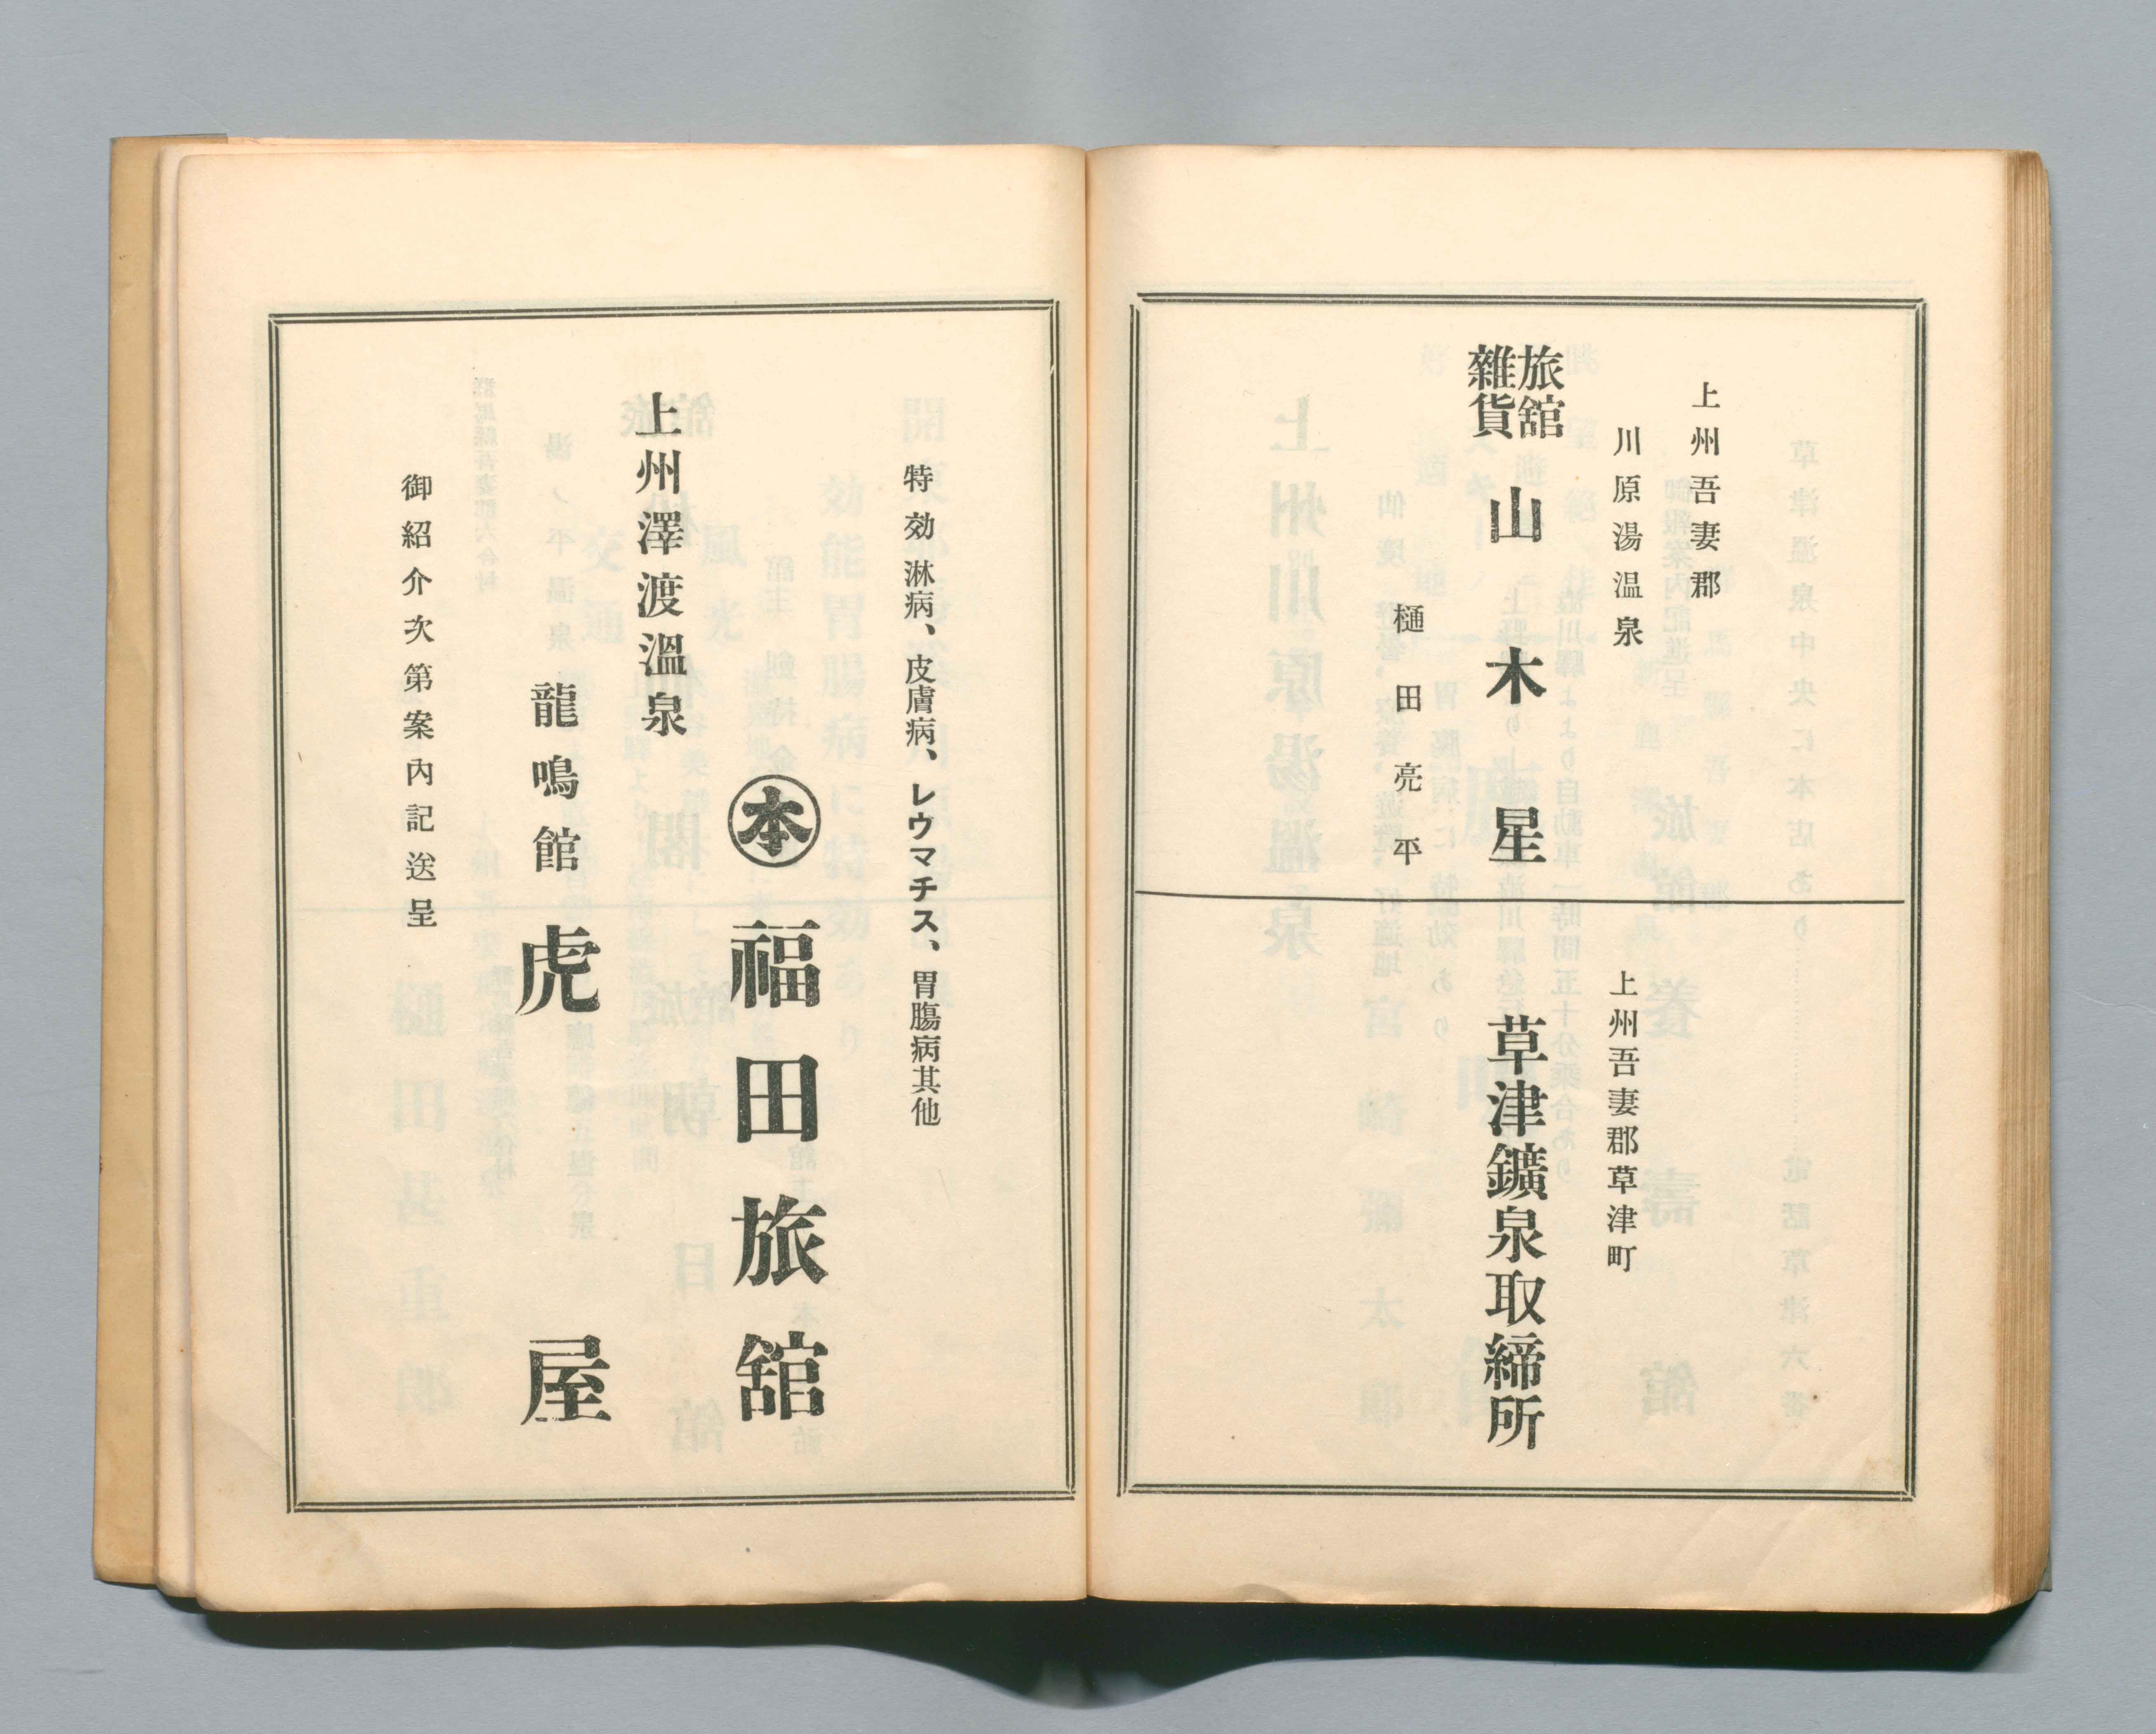 上州吾妻郡
川原湯温泉
旅舘
雜貨
山木星
樋田亮平
上州吾妻郡草津町
草津鑛泉取締所
特効淋病、皮膚病、レウマチス、胃腸病其他
本 福田旅舘
上州澤渡溫泉
龍鳴館 虎屋
御紹介次第案內記送呈